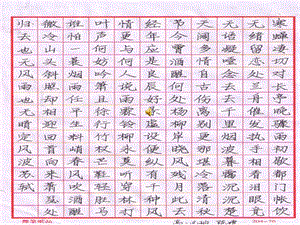 寒蝉凄切对长亭晚骤雨初歇都门帐饮
无绪留恋处兰舟催发执手相看泪眼竟
无语凝噎念去去千里烟波暮霭沉沉楚
天阔多情自古伤离别更那堪冷落清秋
节今宵酒醒何处杨柳岸晓风残月此去
经年应是良辰好景虚设便纵有千种风
情更与何人说雨霖铃柳永莫听穿林打
叶声何妨吟啸且徐行竹杖芒鞋轻胜马
谁怕一蓑烟雨任平生料峭春风吹酒醒
微冷山头斜照却相迎回首向来萧瑟处
归去也无风雨也无晴定风波苏轼